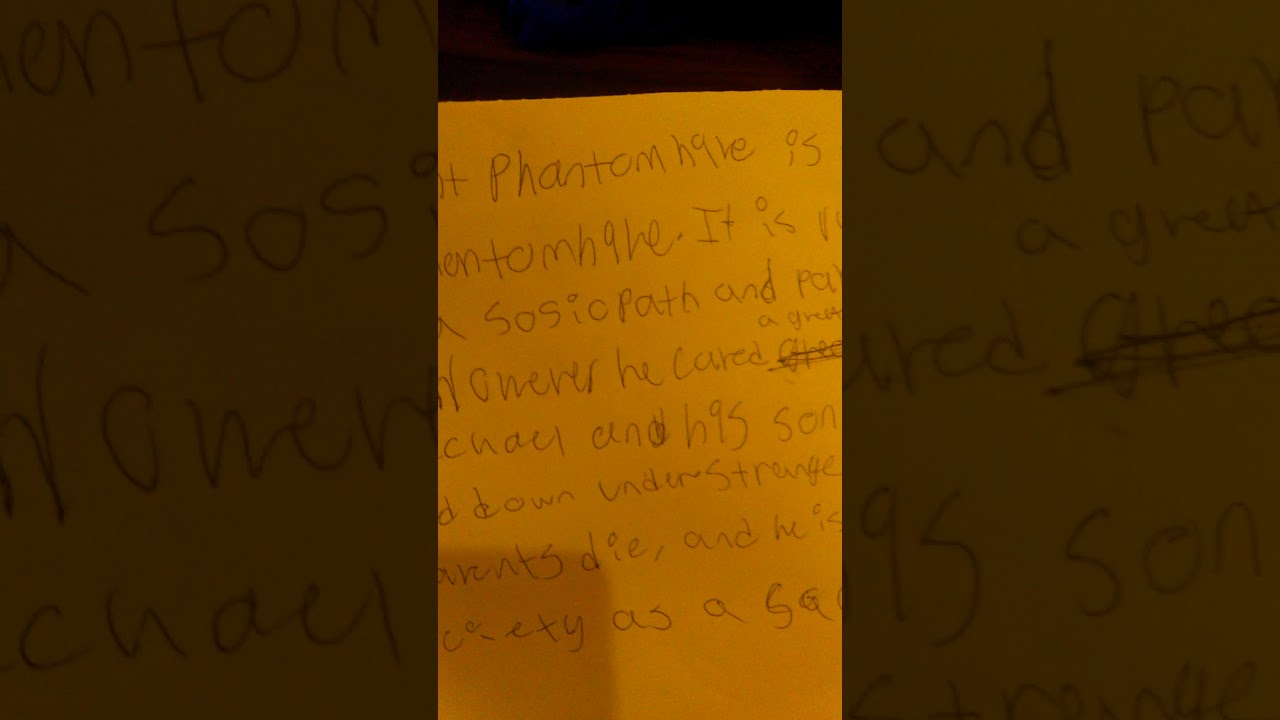 nt Phantomhive is
entomhive. It is
a sosiopath and pa
However he cared a great
chael and his son
d down under strange
arents die, and he is
ciety as a sac